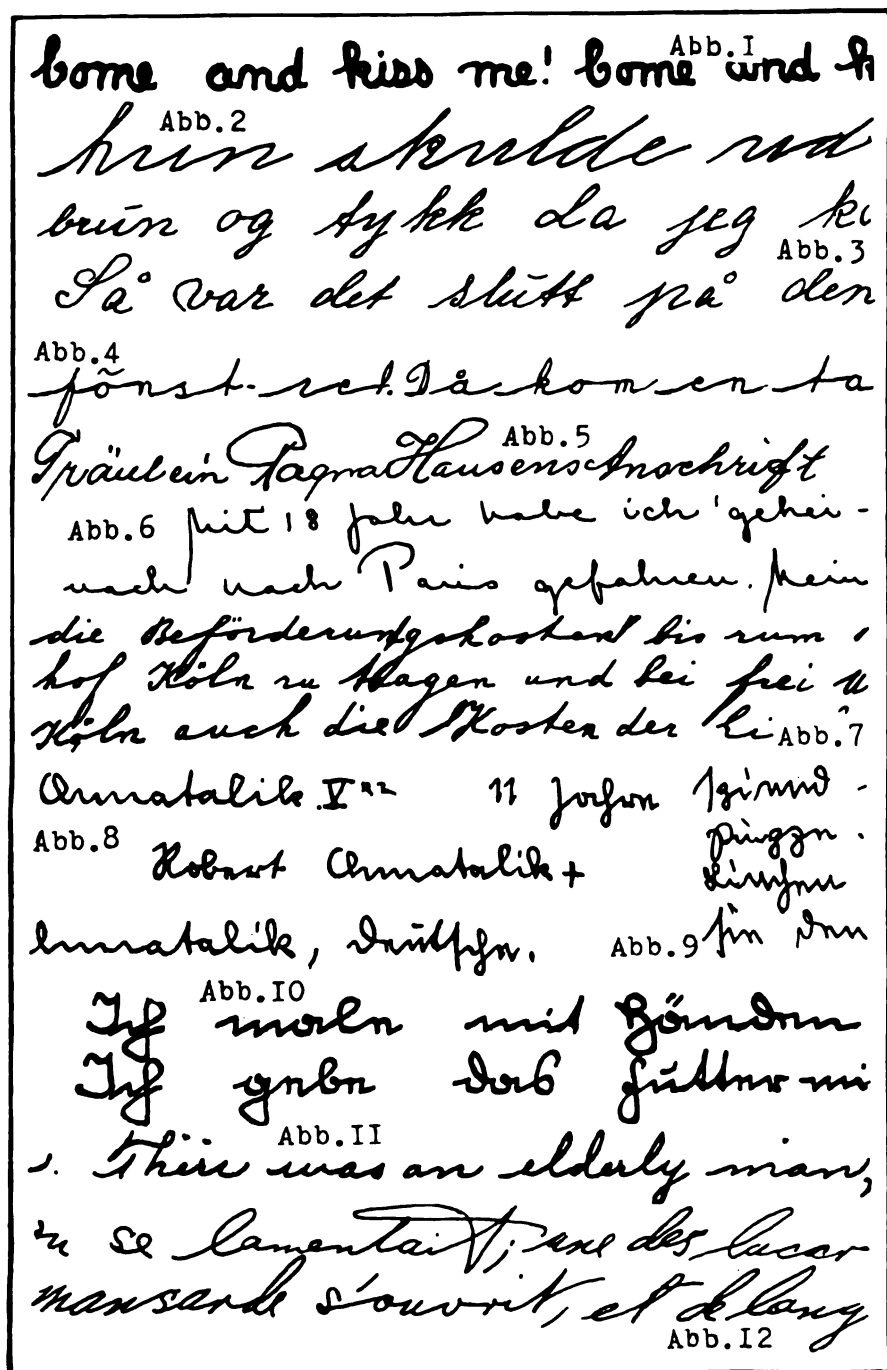 Come and kiss me! Come and k
Abb.I
Abb.2
hun skulde ud
brún og tykk da jeg
Abb.3
Så var det slútt på den
Abb.4
fönst-ret. Då kom en ta
Fräulein Ragna Hausens Anschrift
Abb.5
Abb.6 Mit 18 Jahr habe ich gehei-
nach nach Paris gefahren. Mein
die Beförderungskosten bis zum
hof Köln zu tragen und bei frei u
Köln auch die Kosten der Ei
Abb.7
Chmatalik 11 Jahre
Abb.8
Robert Chmatalik +
hmatalik, Deutsche.
Abb.9 den
Abb.IO
Ich male mit Händen
Ich gebe das Futter mi
Abb.II
There was an elderly man,
se lamentait, une des lucar
mansarde s'ouvrit, et de long
Abb.I2